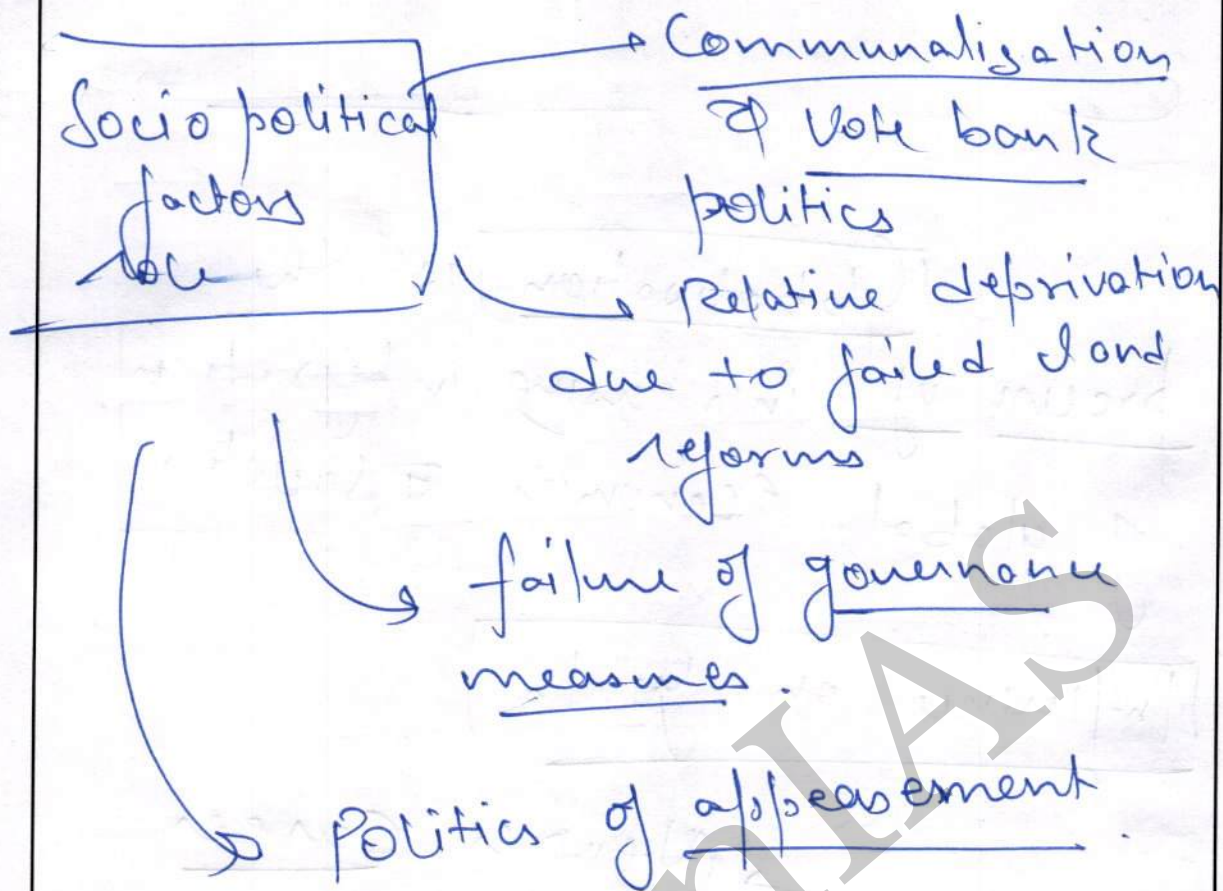 Socio political
factors
role
Communalization
& Vote bank
politics
Relative deprivation
due to failed land
reforms
failure of governance
measures.
Politics of appeasement.
nIAS